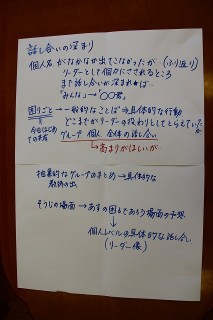 話し合いの深まり
個人名がなかなか出てこなかったが…(ふり返り)
リーダーとして個々にさされるところ
まで話し合いが深まれば…
"みんな" → "○○君"
困りごと → 一般的なことば ⇒ 具体的な行動
どこまでがリーダーの役わりとしてとらえていたか
今日はじめての共有
グループ 個人 全体の話し合い
→ 高まりがほしいが…
抽象的なグループのまとめ → 具体的な
教師の出
そうじの場面 → あすの困るであろう場面の予想
個人レベルの具体的な話し合い
(リーダー像)